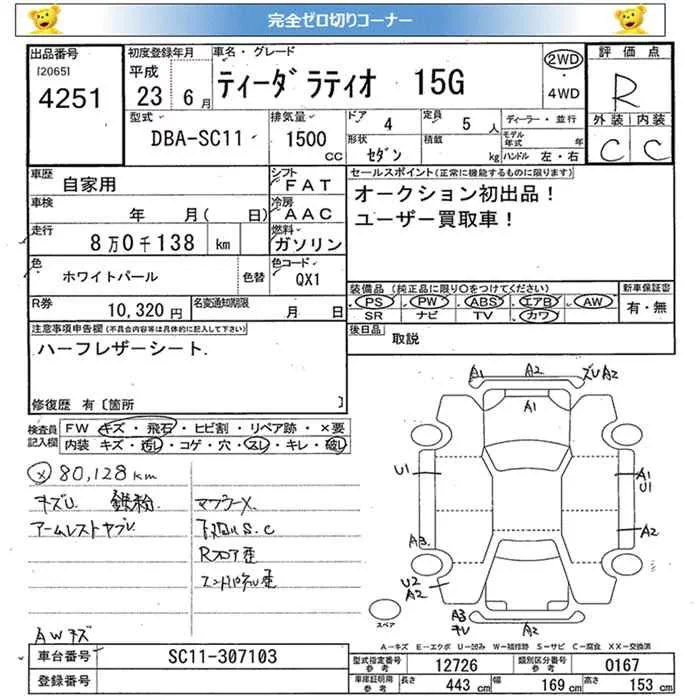 完全ゼロ切りコーナー
出品番号 初度登録年月 車名・グレード 評価点
[2065] 平成 ティーダ ラティオ 15G 2WD・4WD R
4251 23年 6月
型式 排気量 ドア 4 定員 5人 ディーラー・並行 外装 内装
DBA-SC11 1500cc 形状 セダン 積載 kg モデル年式 年 C C
ハンドル 左・右
車歴 自家用 シフト FAT セールスポイント(正常に機能するものに限ります)
車検 年 月( 日) 冷房 AAC オークション初出品!
走行 8万0千138 km 燃料 ガソリン ユーザー買取車!
色 ホワイトパール 色替 色コード QX1
装備品(純正品に限り○をつけてください) 新車保証書
R券 10,320円 名変通知期限 月 日 PS PW ABS エアB AW 有・無
SR ナビ TV カワ
注意事項申告欄(不具合内容等は具体的に記入して下さい) 後日品 取説
ハーフレザーシート.
修復歴 有〔箇所 〕
検査員記入欄 FW キズ・飛石・ヒビ割・リペア跡・×要
内装 キズ・汚レ・コゲ・穴・スレ・キレ・破レ
× 80,128km
キズU 鉄粉. マフラーX.
アームレストヤブレ 下廻りS.C
Rフロア歪
エンドパネル歪
AWキズ
A1 A2 ズレA2
A1
U1 A1 U1
A3 A2
U2 A2
A3 A2
スペア
A-キズ E-エクボ U-凹み W-補修跡 S-サビ C-腐食 XX-交換済
車台番号 SC11-307103 型式指定番号 参考 12726 類別区分番号 参考 0167
登録番号 車庫証明用 参考 長さ 443cm 幅 169cm 高さ 153cm